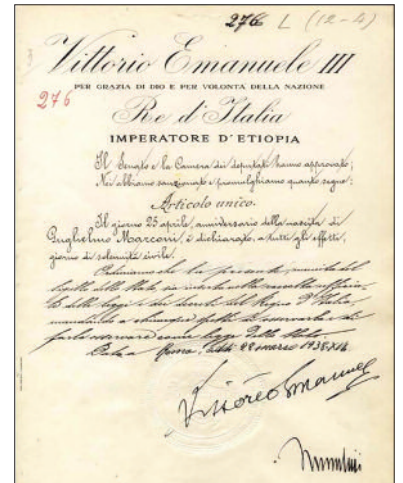 276 L (12-4)
Vittorio Emanuele III
PER GRAZIA DI DIO E PER VOLONTÀ DELLA NAZIONE
276
Re d'Italia
IMPERATORE D'ETIOPIA
Il Senato e la Camera dei deputati hanno approvato;
Noi abbiamo sanzionato e promulghiamo quanto segue:
Articolo unico.
Il giorno 25 aprile, anniversario della nascita di
Guglielmo Marconi, è dichiarato, a tutti gli effetti,
giorno di solennità civile.
Ordiniamo che la presente, munita del
sigillo dello Stato, sia inserta nella raccolta ufficia-
le delle leggi e dei decreti del Regno d'Italia,
mandando a chiunque spetti di osservarla e di
farla osservare come legge dello Stato.
Data a Roma, addì 28 marzo 1938 XVI
Vittorio Emanuele
Mussolini